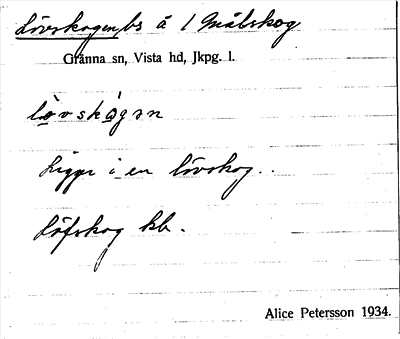 Lövskogen, bs å 1 Målskog
Gränna sn, Vista hd, Jkpg. l.
lövskogən
Ligger i en lövskog.
Löfskog kb.
Alice Petersson 1934.